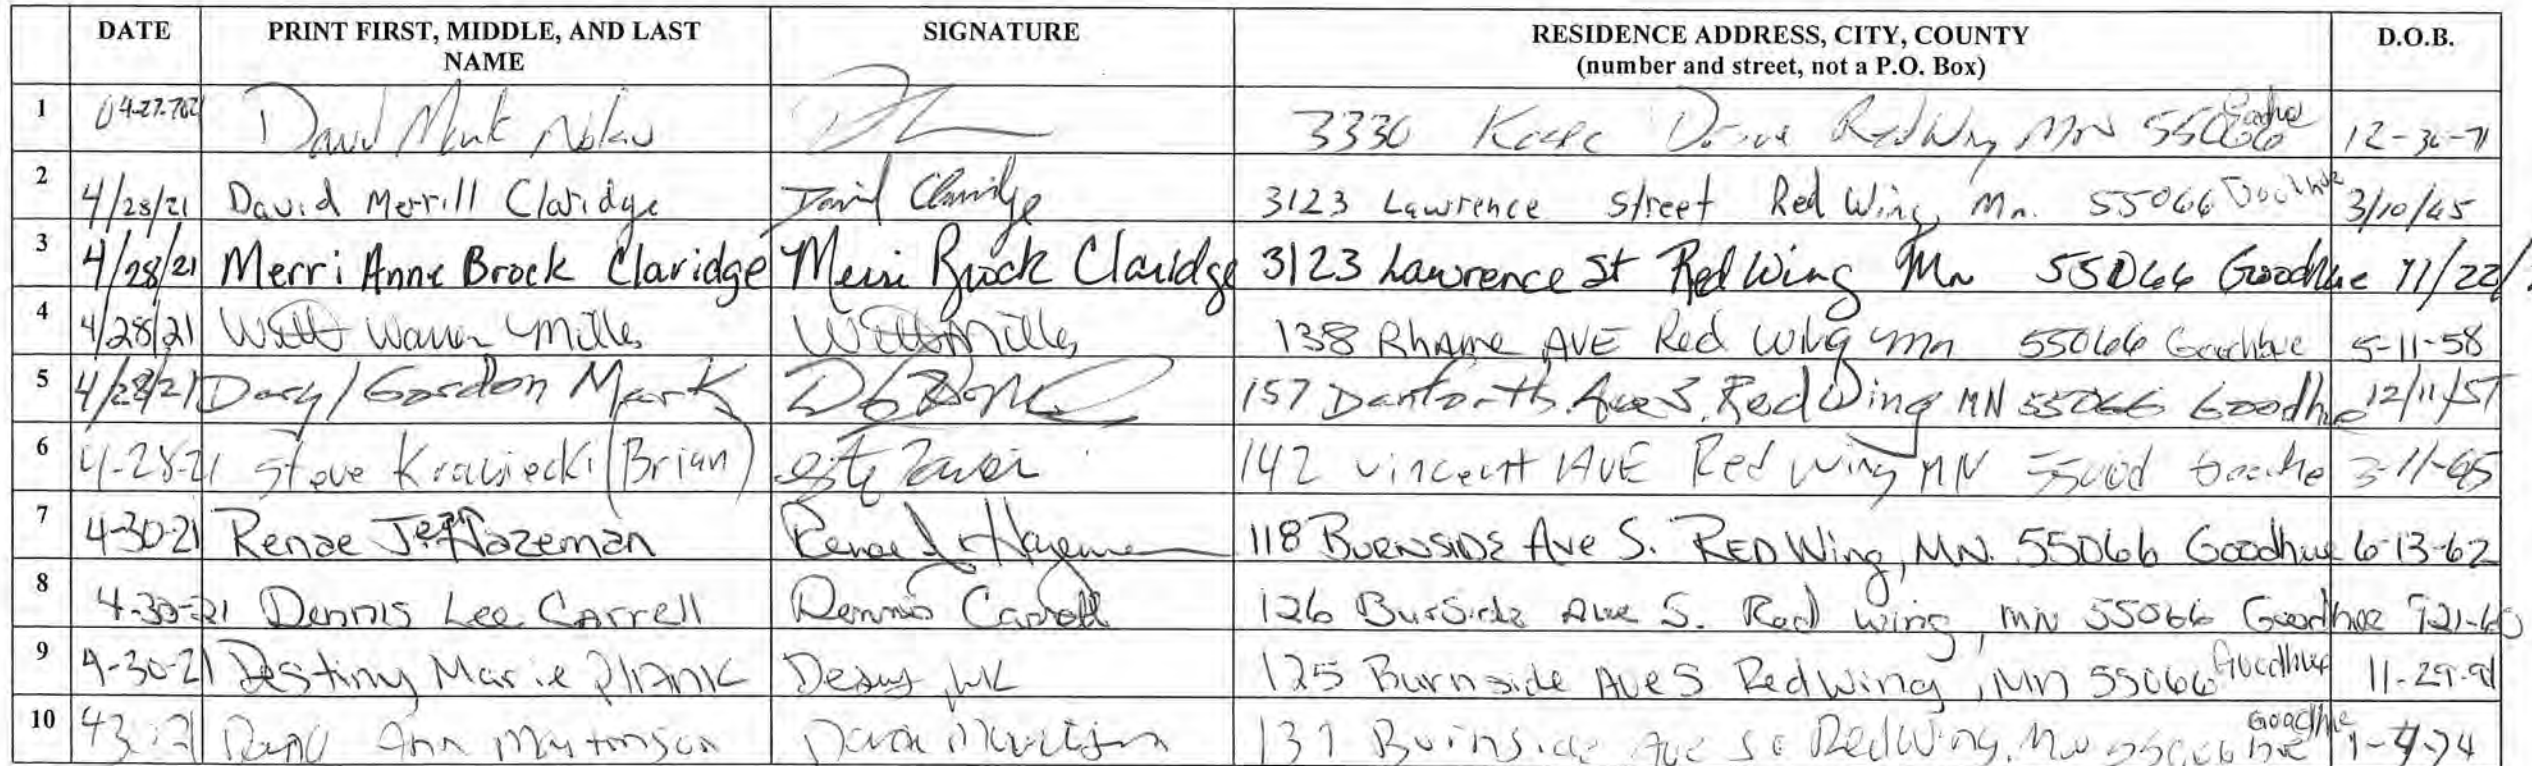 DATE PRINT FIRST, MIDDLE, AND LAST NAME SIGNATURE RESIDENCE ADDRESS, CITY, COUNTY (number and street, not a P.O. Box) D.O.B.
1 David Mark Nolan 3330 Drive Red Wing MN 55066 Goodhue
2 4/28/21 David Merrill Claridge David Claridge 3123 Lawrence Street Red Wing, Mn. 55066 Goodhue 3/10/45
3 4/28/21 Merri Anne Brock Claridge Merri Brock Claridge 3123 Lawrence St Red Wing Mn 55066 Goodhue 11/22/
4 4/28/21 Warren Mills Mills 138 Rhame AVE Red Wing mn 55066 Goodhue 5-11-58
5 4/28/21 Daryl Gordon Mark 157 Danforth Ave S. Red Wing MN 55066 Goodhue 12/11/57
6 4-28-21 Steve Krawiecki (Brian) 142 Vincent AVE Red Wing MN Goodhue 3-11-65
7 4-30-21 Renae Hazeman Renae J Hazeman 118 BURNSIDE Ave S. RED Wing, MN. 55066 Goodhue 6-13-62
8 4-30-21 Dennis Lee Carrell Dennis Carrell 126 Ave S. Red Wing, MN 55066 Goodhue
9 4-30-21 Destiny Marie Plank 125 Burnside Ave S Red Wing, MN 55066 Goodhue
10 Ann Martinson Martinson Burnside Ave So Red Wing, Mn 55066